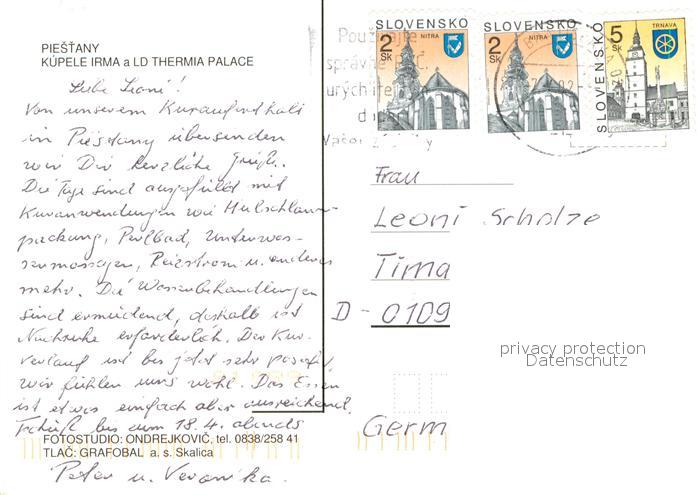 PIEŠŤANY
KÚPELE IRMA a LD THERMIA PALACE
Liebe Leoni!
Von unserem Kuraufenthalt
in Piešťany übersenden
wir Dir herzliche Grüße.
Die Tage sind ausgefüllt mit
Kuranwendungen wie
packung, Unterwas-
sermassagen, Reizstrom u. anderes
mehr. Die Wasserbehandlungen
sind ermüdend, deshalb ist
Nachruhe erforderlich. Der Kur-
verlauf ist bis jetzt sehr positiv,
wir fühlen uns wohl. Das Essen
ist etwas einfach aber ausreichend.
Tschüß bis zum 18.4. abends
FOTOSTUDIO: ONDREJKOVIČ, tel. 0838/258 41
TLAČ: GRAFOBAL a. s. Skalica
Peter u. Veronika.
SLOVENSKO
2 Sk
NITRA
SLOVENSKO
2 Sk
NITRA
SLOVENSKO
5 Sk
TRNAVA
Používajte
Frau
Leoni Scholze
Tima
D-0109
Germ
privacy protection
Datenschutz